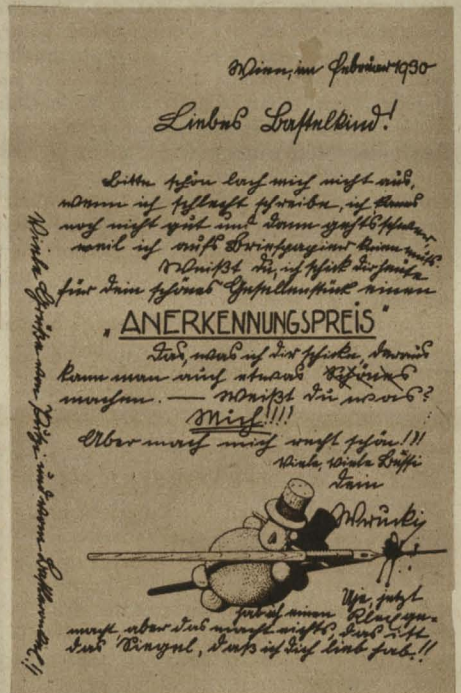 Wien, im Februar 1930
Liebes Bastelkind!
Bitte schön lach mich nicht aus,
wenn ich schlecht schreibe, ich kanns
noch nicht gut und dann gehts schwer,
weil ich aufs Briefpapier knien muß.
Weißt du, ich schick dir heute
für dein schönes Gesellenstück einen
„ANERKENNUNGSPREIS"
Das, was ich dir schicke, daraus
kann man auch etwas Schönes
machen. — Weißt du was?
Mich!!!!
Aber mach mich recht schön!?!
Viele, viele Bussi
dein
Wrucki
Uje, jetzt
hab ich einen Klex ge-
macht aber das macht nichts, das ist
das Siegel, daß ich dich lieb hab.!!
Viele Grüße von und vom